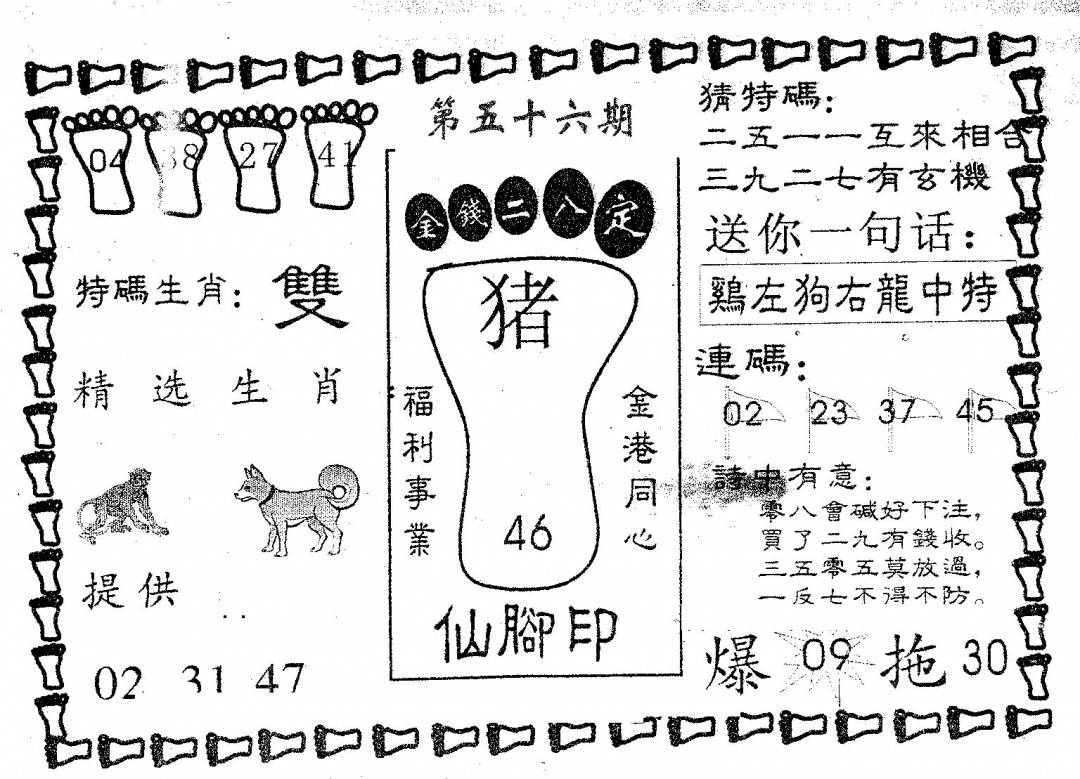 第五十六期
04 38 27 41
特碼生肖：雙
精选生肖
提供
02 31 47
金錢二八定
猪
福利事業
金港同心
46
仙腳印
猜特碼：
二五一一互來相合
三九二七有玄機
送你一句话：
鷄左狗右龍中特
連碼：
02 23 37 45
詩中有意：
零八會碱好下注，
買了二九有錢收。
三五零五莫放過，
一反七不得不防。
爆 09 拖 30